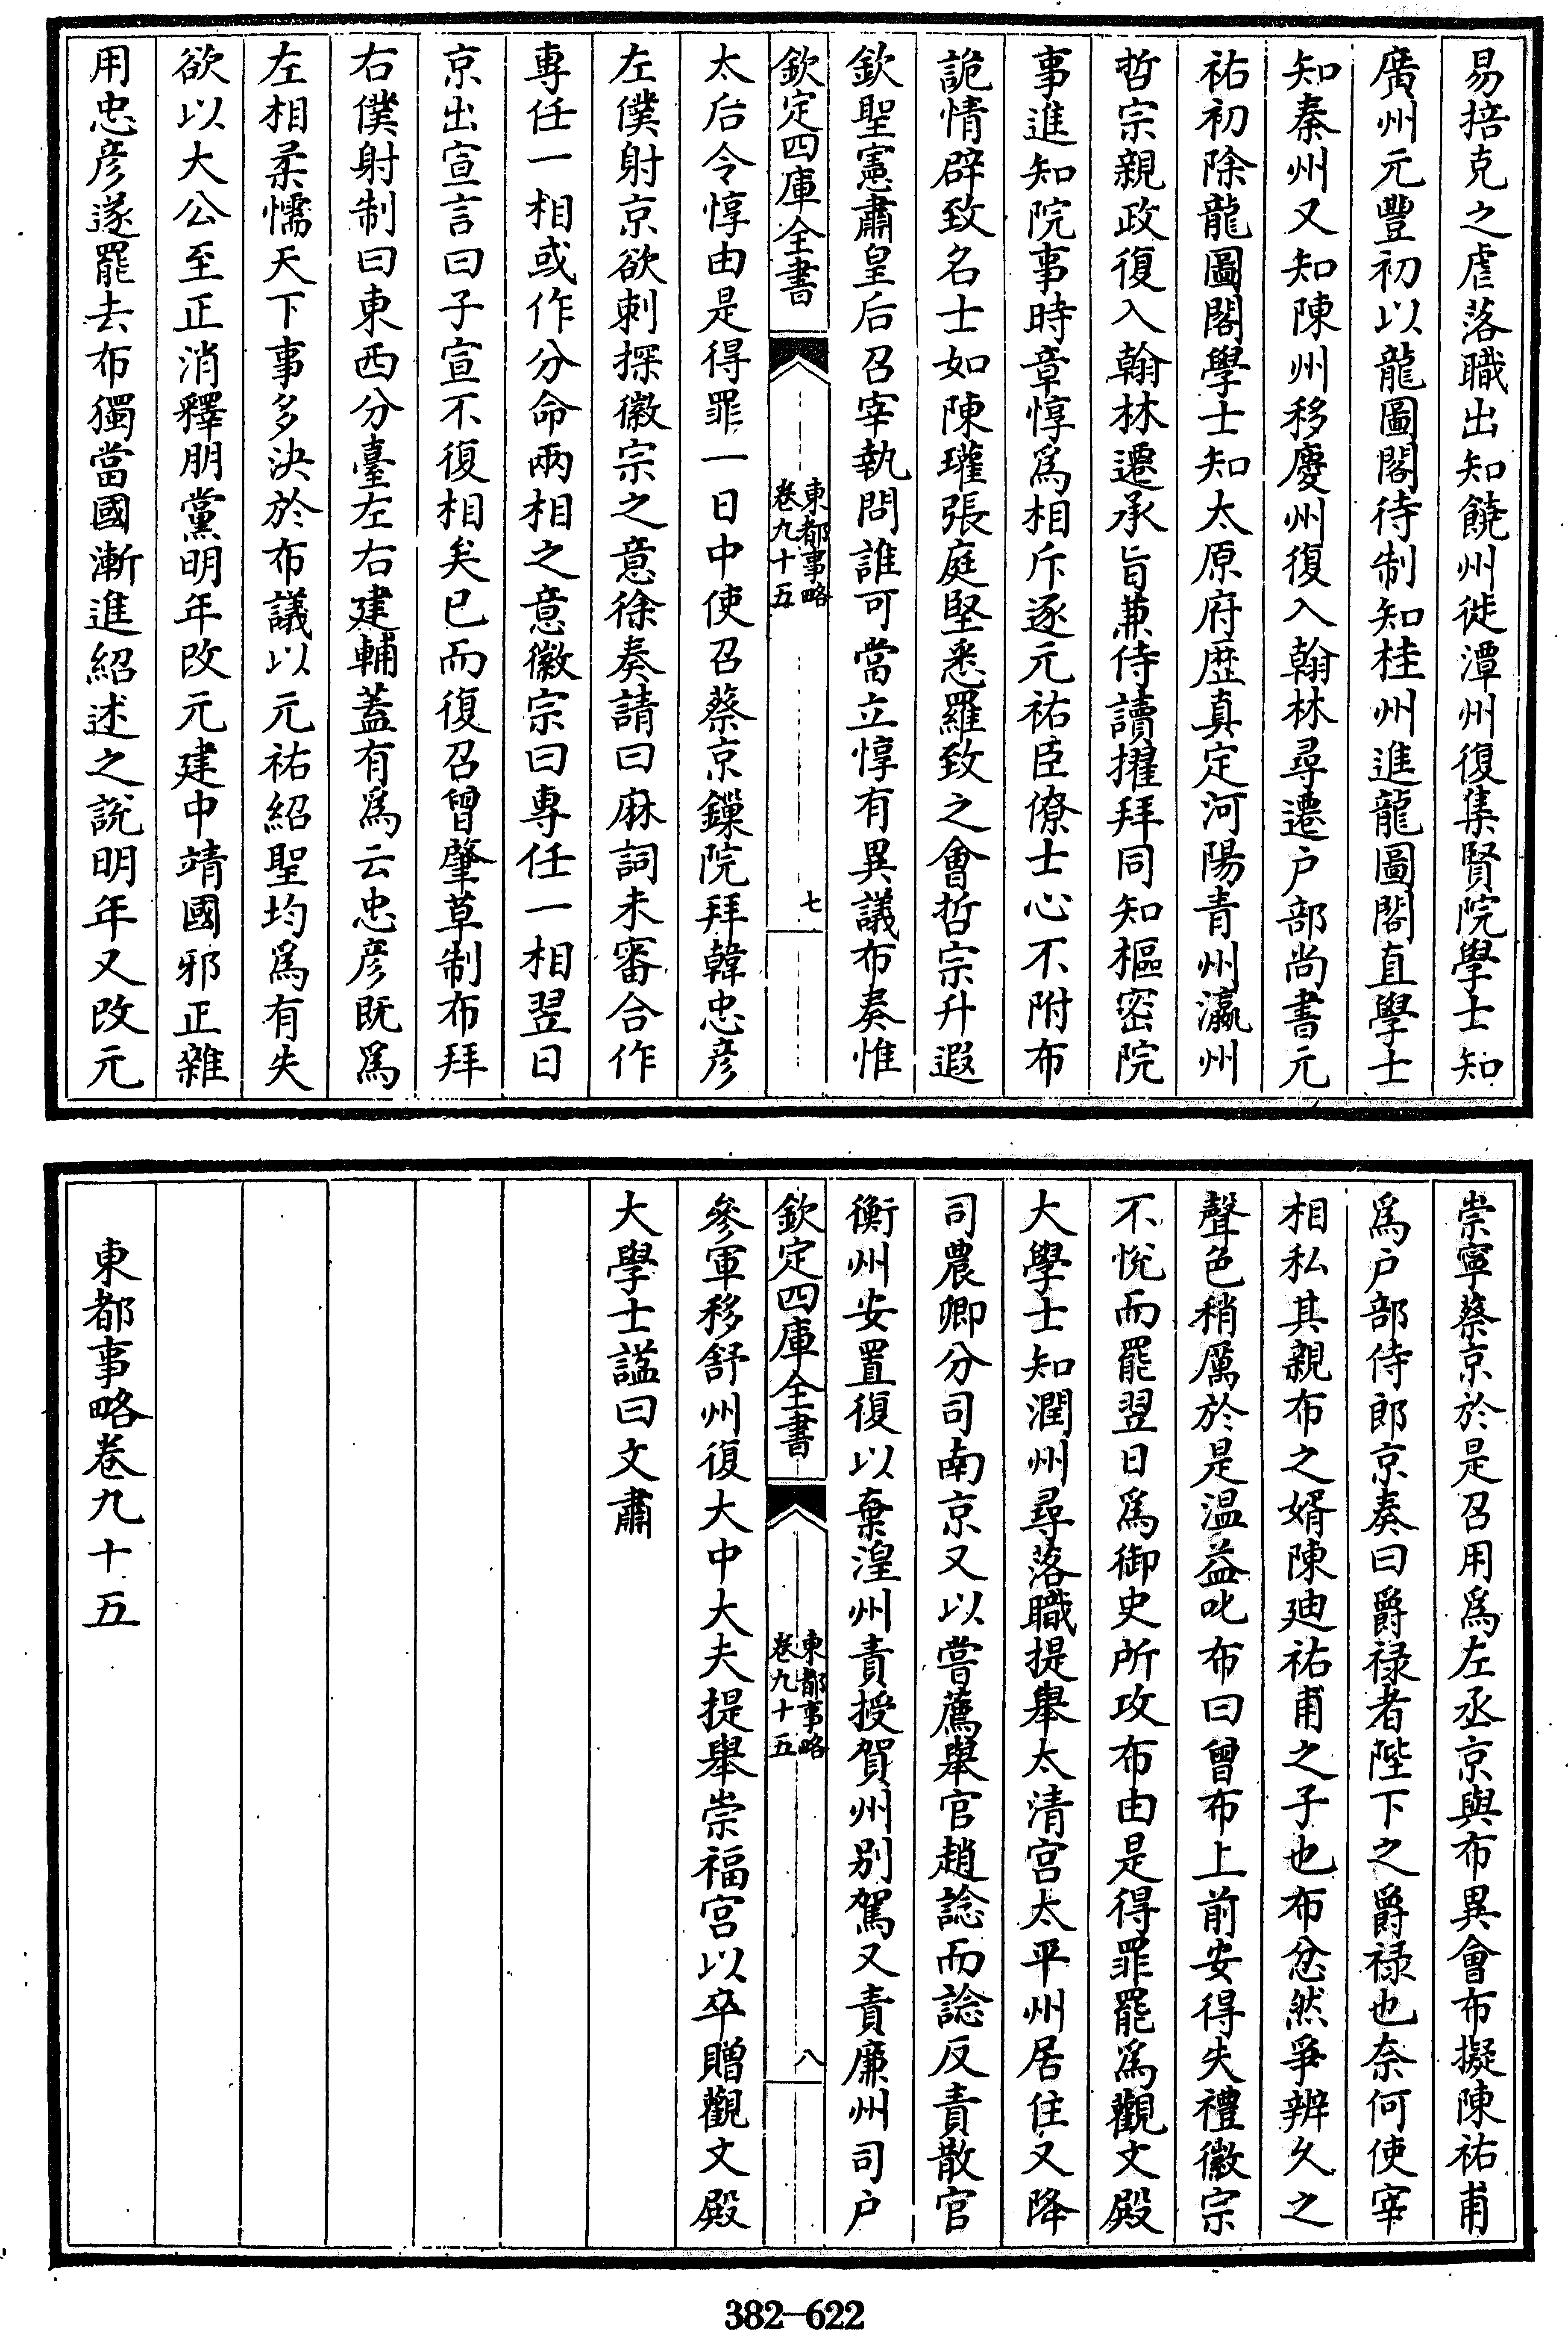 易掊克之虐落職出知饒州徙潭州復集賢院學士知
廣州元豐初以龍圖閣待制知桂州進龍圖閣直學士
知秦州又知陳州移慶州復入翰林尋遷户部尚書元
祐初除龍圖閣學士知太原府歴真定河陽青州瀛州
哲宗親政復入翰林遷承旨兼侍讀擢拜同知樞密院
事進知院事時章惇爲相斥逐元祐臣僚士心不附布
詭情辟致名士如陳瓘張庭堅悉羅致之會哲宗升遐
欽聖憲肅皇后召宰執問誰可當立惇有異議布奏惟
欽定四庫全書
東都事略
卷九十五
七
太后令惇由是得罪一日中使召蔡京鏁院拜韓忠彦
左僕射京欲刺探徽宗之意徐奏請曰麻詞未審合作
專任一相或作分命兩相之意徽宗曰專任一相翌日
京出宣言曰子宣不復相矣已而復召曾肇草制布拜
右僕射制曰東西分臺左右建輔蓋有爲云忠彦既爲
左相柔懦天下事多決於布議以元祐紹聖均爲有失
欲以大公至正消釋朋黨明年改元建中靖國邪正雜
用忠彦遂罷去布獨當國漸進紹述之說明年又改元
崇寧蔡京於是召用爲左丞京與布異會布擬陳祐甫
爲户部侍郎京奏曰爵禄者陛下之爵禄也奈何使宰
相私其親布之婿陳廸祐甫之子也布忿然爭辨久之
聲色稍厲於是温益叱布曰曾布上前安得失禮徽宗
不悅而罷翌日爲御史所攻布由是得罪罷爲觀文殿
大學士知潤州尋落職提舉太清宫太平州居住又降
司農卿分司南京又以嘗薦舉官趙諗而諗反責散官
衡州安置復以棄湟州責授賀州别駕又責廉州司户
欽定四庫全書
東都事略
卷九十五
八
參軍移舒州復大中大夫提舉崇福宫以卒贈觀文殿
大學士謚曰文肅
東都事略卷九十五
382-622